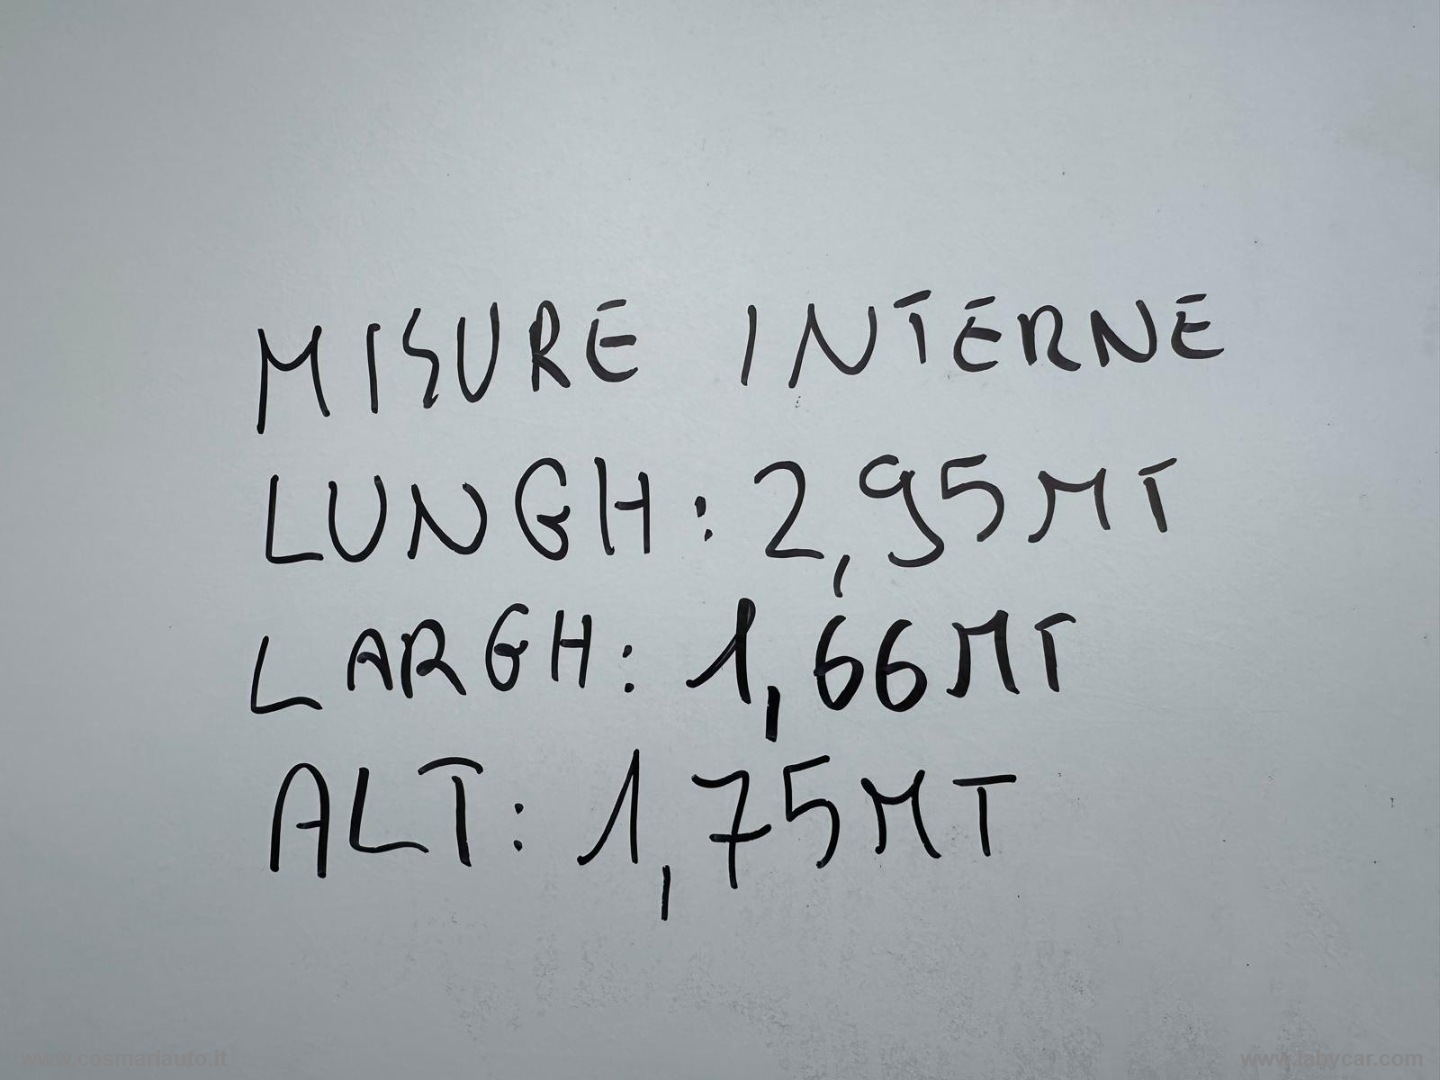 MISURE INTERNE
LUNGH: 2,95MT
LARGH: 1,66MT
ALT: 1,75MT
www.cosmariauto.it
www.labycar.com